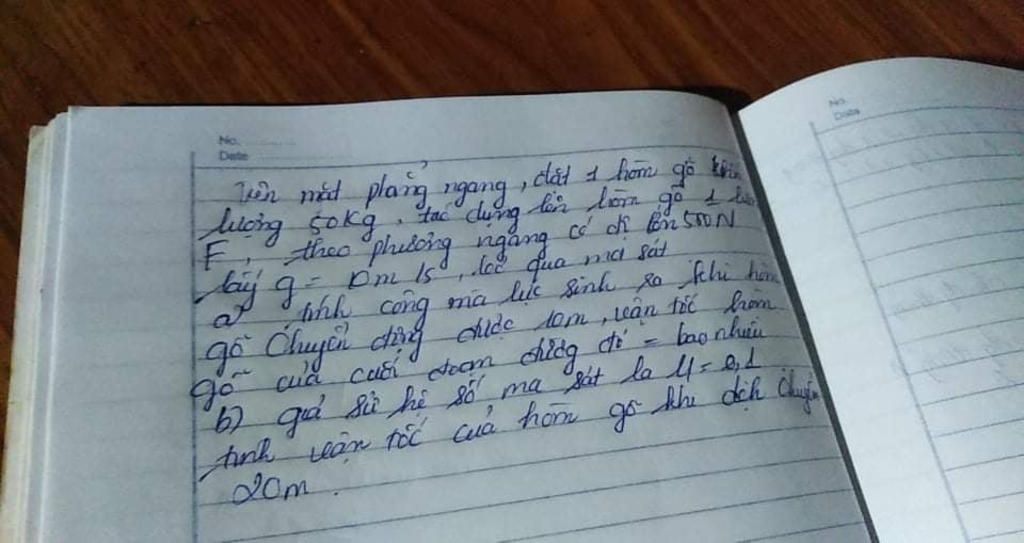 No.
Date
Trên mặt phẳng ngang, đặt 1 hòm gỗ khối
lượng 50Kg, tác dụng lên hòm gỗ 1 lực
F, theo phương ngang có độ lớn 500N
lấy g = 10m/s, bỏ qua ma sát
a tính công mà lực sinh ra khi hòm
gỗ Chuyển động được 10m, vận tốc hòm
gỗ của cuối đoạn đường đó = bao nhiêu
b) giả sử hệ số ma sát là μ = 0,1
tính vận tốc của hòm gỗ khi dịch Chuyển
20m.
No.
Date